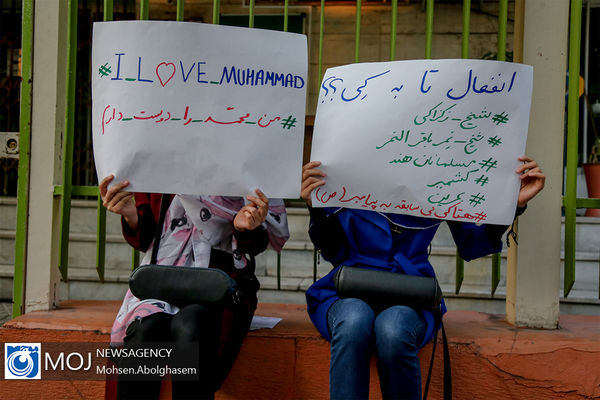 #I_L♡VE_MUHAMMAD
#من_محمّد_را_دوست_دارم
انفعال تا به کِی؟؟!
#شیخ_زکزاکی
#شیخ_نمر باقر النمر
#مسلمانان هند
#کشمیر
#بحرین
#هتاکی بی سابقه به پیامبر(ص)
MOJ
NEWSAGENCY
Mohsen.Abolghasem